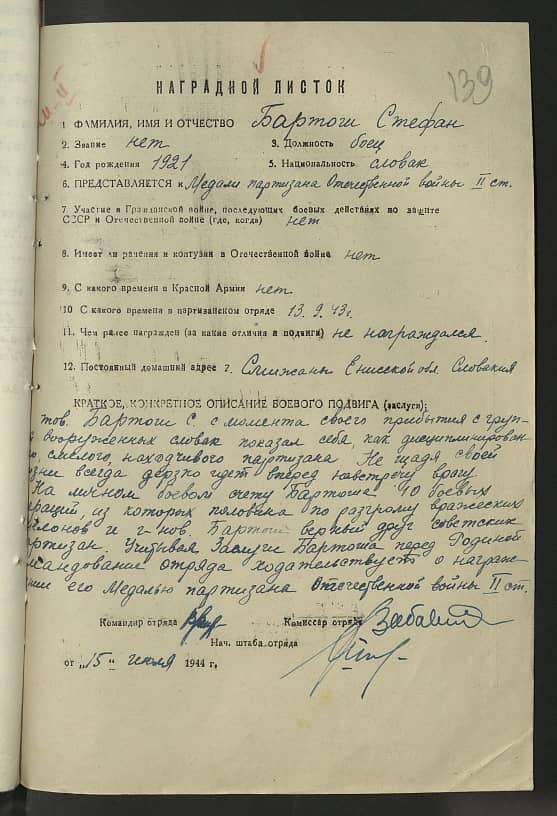 139
НАГРАДНОЙ ЛИСТОК
1 ФАМИЛИЯ, ИМЯ И ОТЧЕСТВО Бартош Стефан
2. Звание нет 3. Должность боец
4. Год рождения 1921 5. Национальность словак
6. ПРЕДСТАВЛЯЕТСЯ к Медали партизана Отечественной войны II ст.
7 Участие в Гражданской войне, последующих боевых действиях по защите
СССР и Отечественной войне (где, когда) нет
8. Имеет ли ранения и контузии в Отечественной войне нет
9. С какого времени в Красной Армии нет
10 С какого времени в партизанском отряде 13.9.43г.
11. Чем ранее награжден (за какие отличия и подвиги) не награждался.
12. Постоянный домашний адрес г. обл. Словакия
КРАТКОЕ, КОНКРЕТНОЕ ОПИСАНИЕ БОЕВОГО ПОДВИГА (заслуги):
тов. Бартош С. с момента своего прибытия с груп-
вооруженных словак показал себя, как дисциплинирован-
о, смелого, находчивого партизана Не щадя своей
зни всегда дерзко идет вперед навстречу врагу
На личном боевом счету Бартоша 40 боевых
ераций, из которых половина по разгрому вражеских
и г-нов. Бартош верный друг советских
артизан. Учитывая Заслуги Бартоша перед Родиной
мандование отряда ходатайствует о награж-
нии его Медалью партизана Отечественной войны II ст.
Командир отряда Комиссар отряда
Нач. штаба отряда
от „15" июля 1944 г.